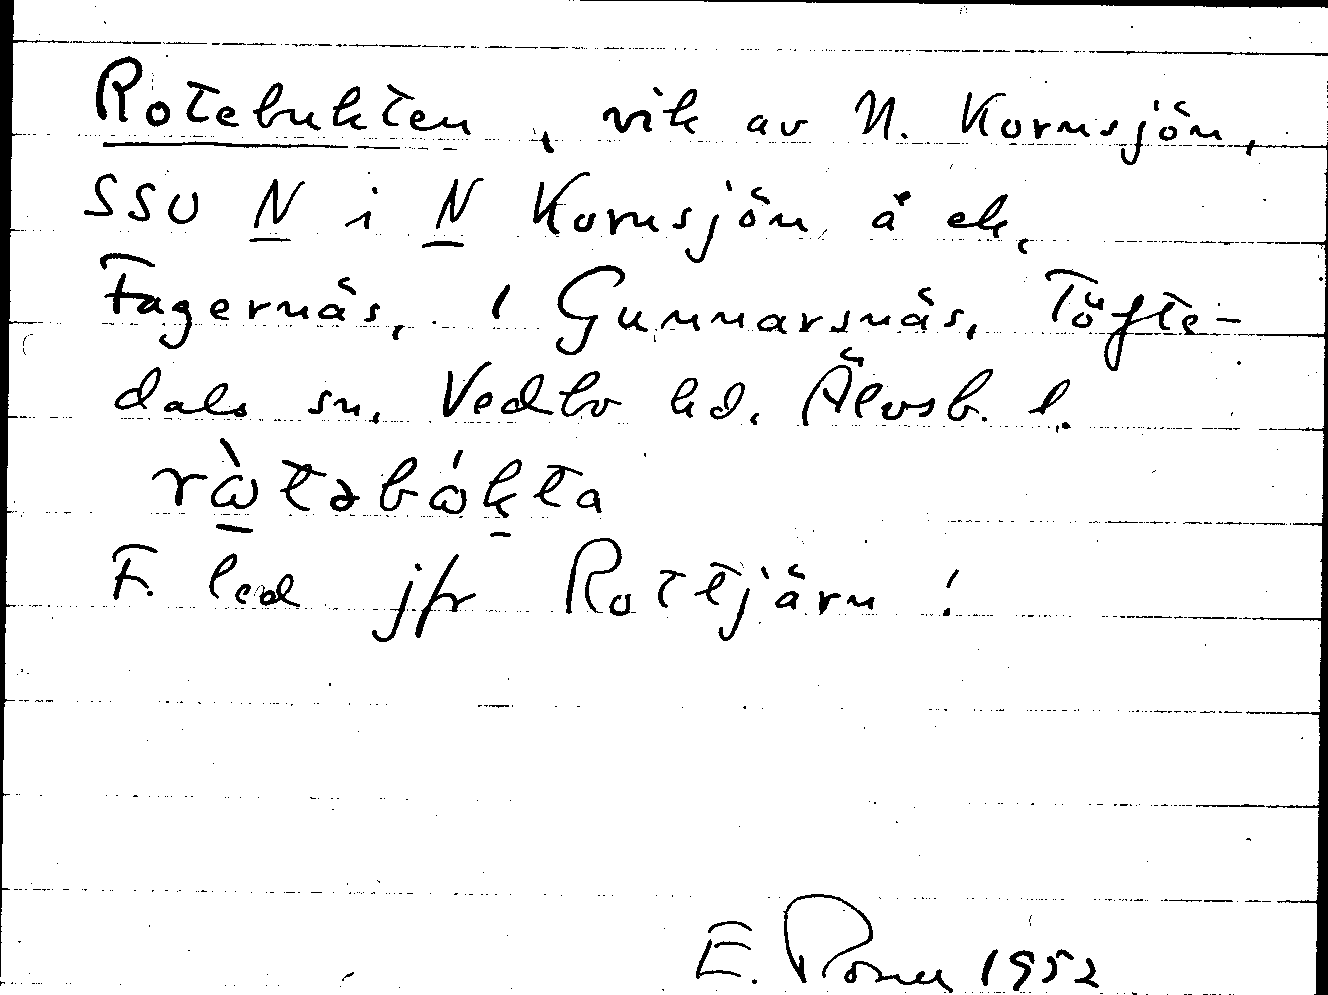 Rotebukten, vik av N. Kornsjön,
SSO N i N Kornsjön å ek.
Fagernäs, 1 Gunnarsnäs, Töfte-
dals sn. Vedbo hd. Älvsb. l.
rὼtəbώkta
F. led jfr Rottjärn!
E. 1952